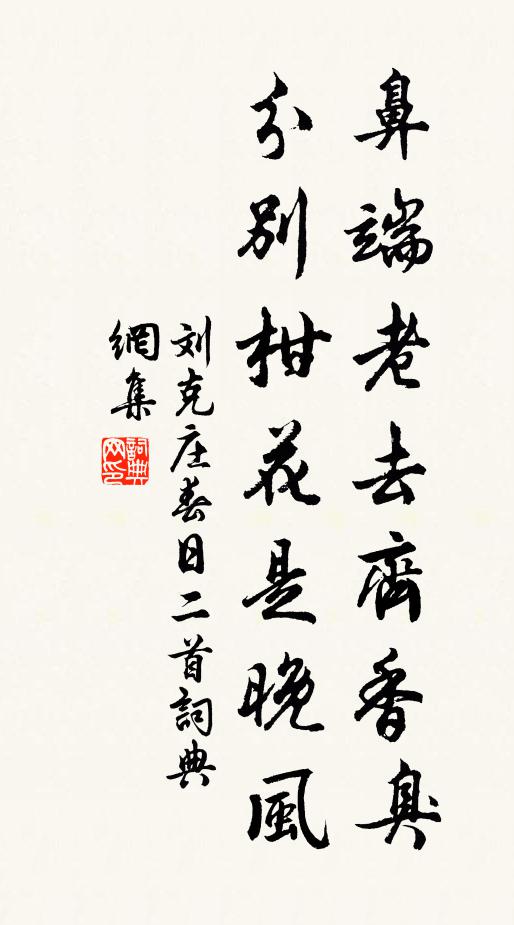 鼻端老去齊香臭
分別柑花是晚風
刘克庄春日二首詞典
網集
詞典網印